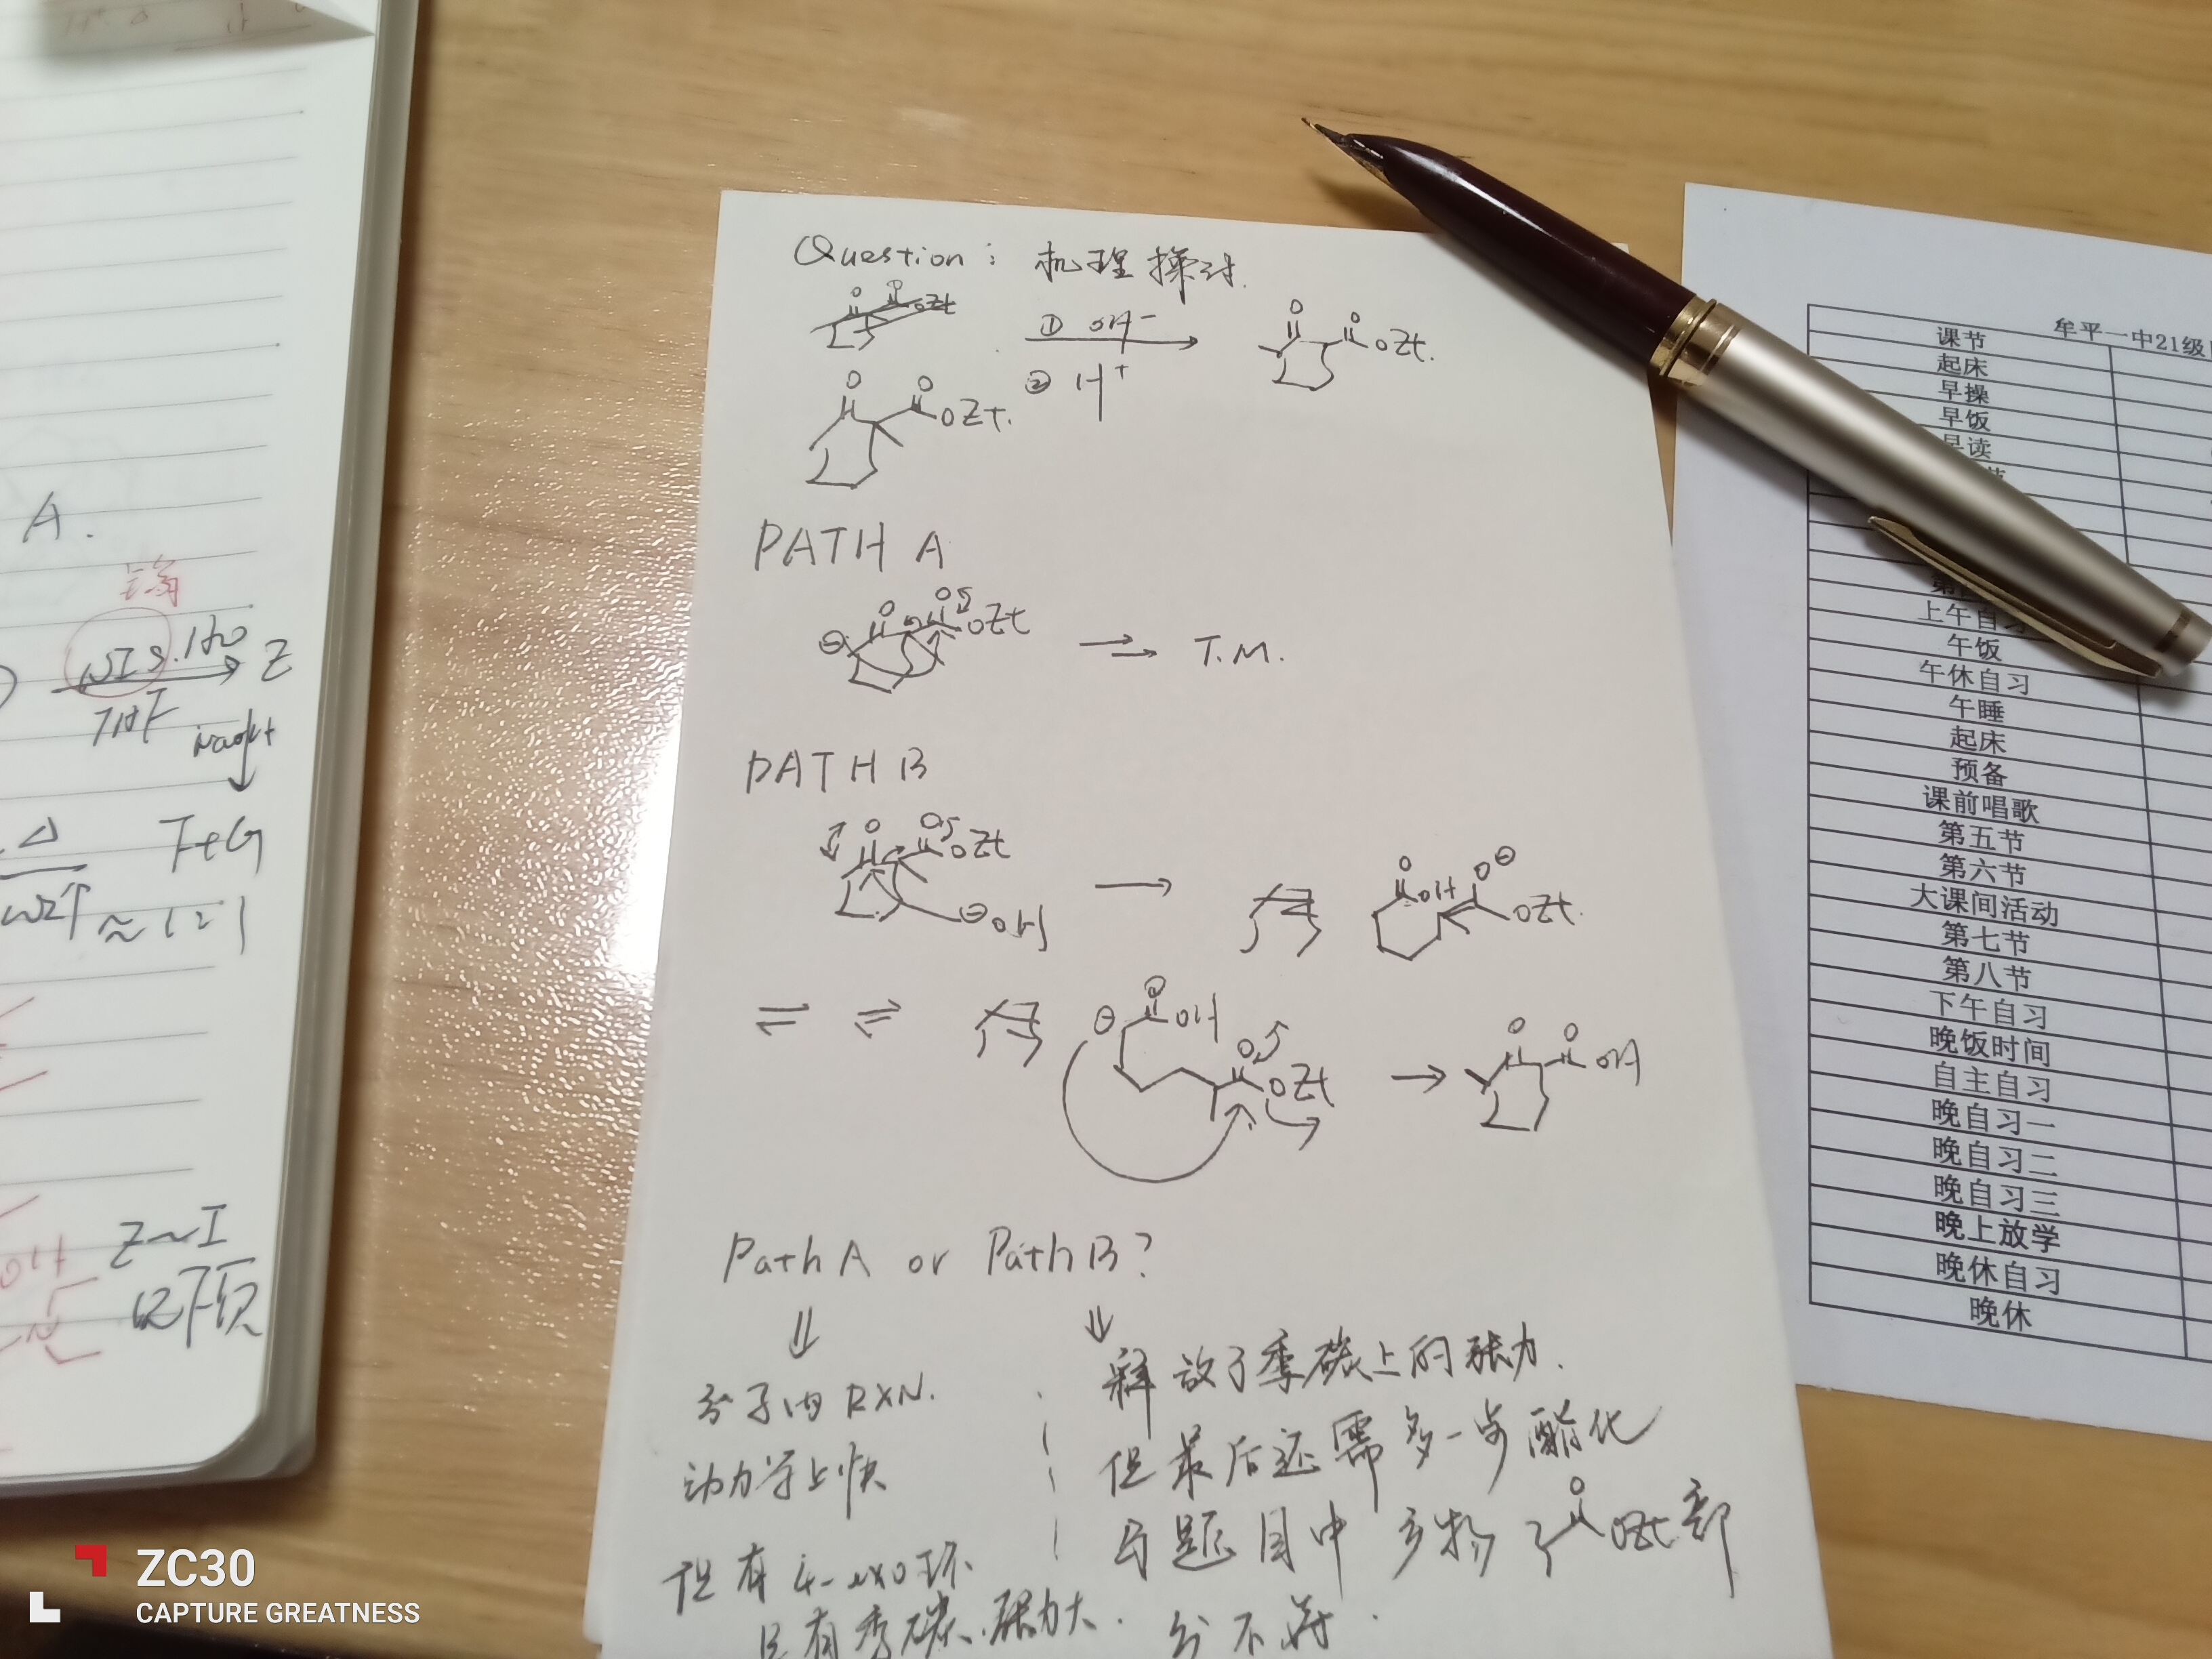 Question: 机理探讨.
① OH⁻
② H⁺
O
O
OEt.
O
O
OEt.
PATH A
O
O
OEt
T.M.
PATH B
O
O
OEt
⊖OH
得
O
OH
O⊖
OEt.
得
O
OH
O
OEt
O
O
OH
Path A or Path B?
分子内 RXN.
动力学上快
但有 4-exo环
且有季碳.张力大.
释放了季碳上的张力.
但最后还需多一步酯化
与题目中产物
O
OEt部
分不符.
A.
NIS.H₂O
THF
E
NaOH
F+G
Δ
≈1:1
E~I
OH
牟平一中21级
课节
起床
早操
早饭
早读
上午自习
午饭
午休自习
午睡
起床
预备
课前唱歌
第五节
第六节
大课间活动
第七节
第八节
下午自习
晚饭时间
自主自习
晚自习一
晚自习二
晚自习三
晚上放学
晚休自习
晚休
ZC30
CAPTURE GREATNESS